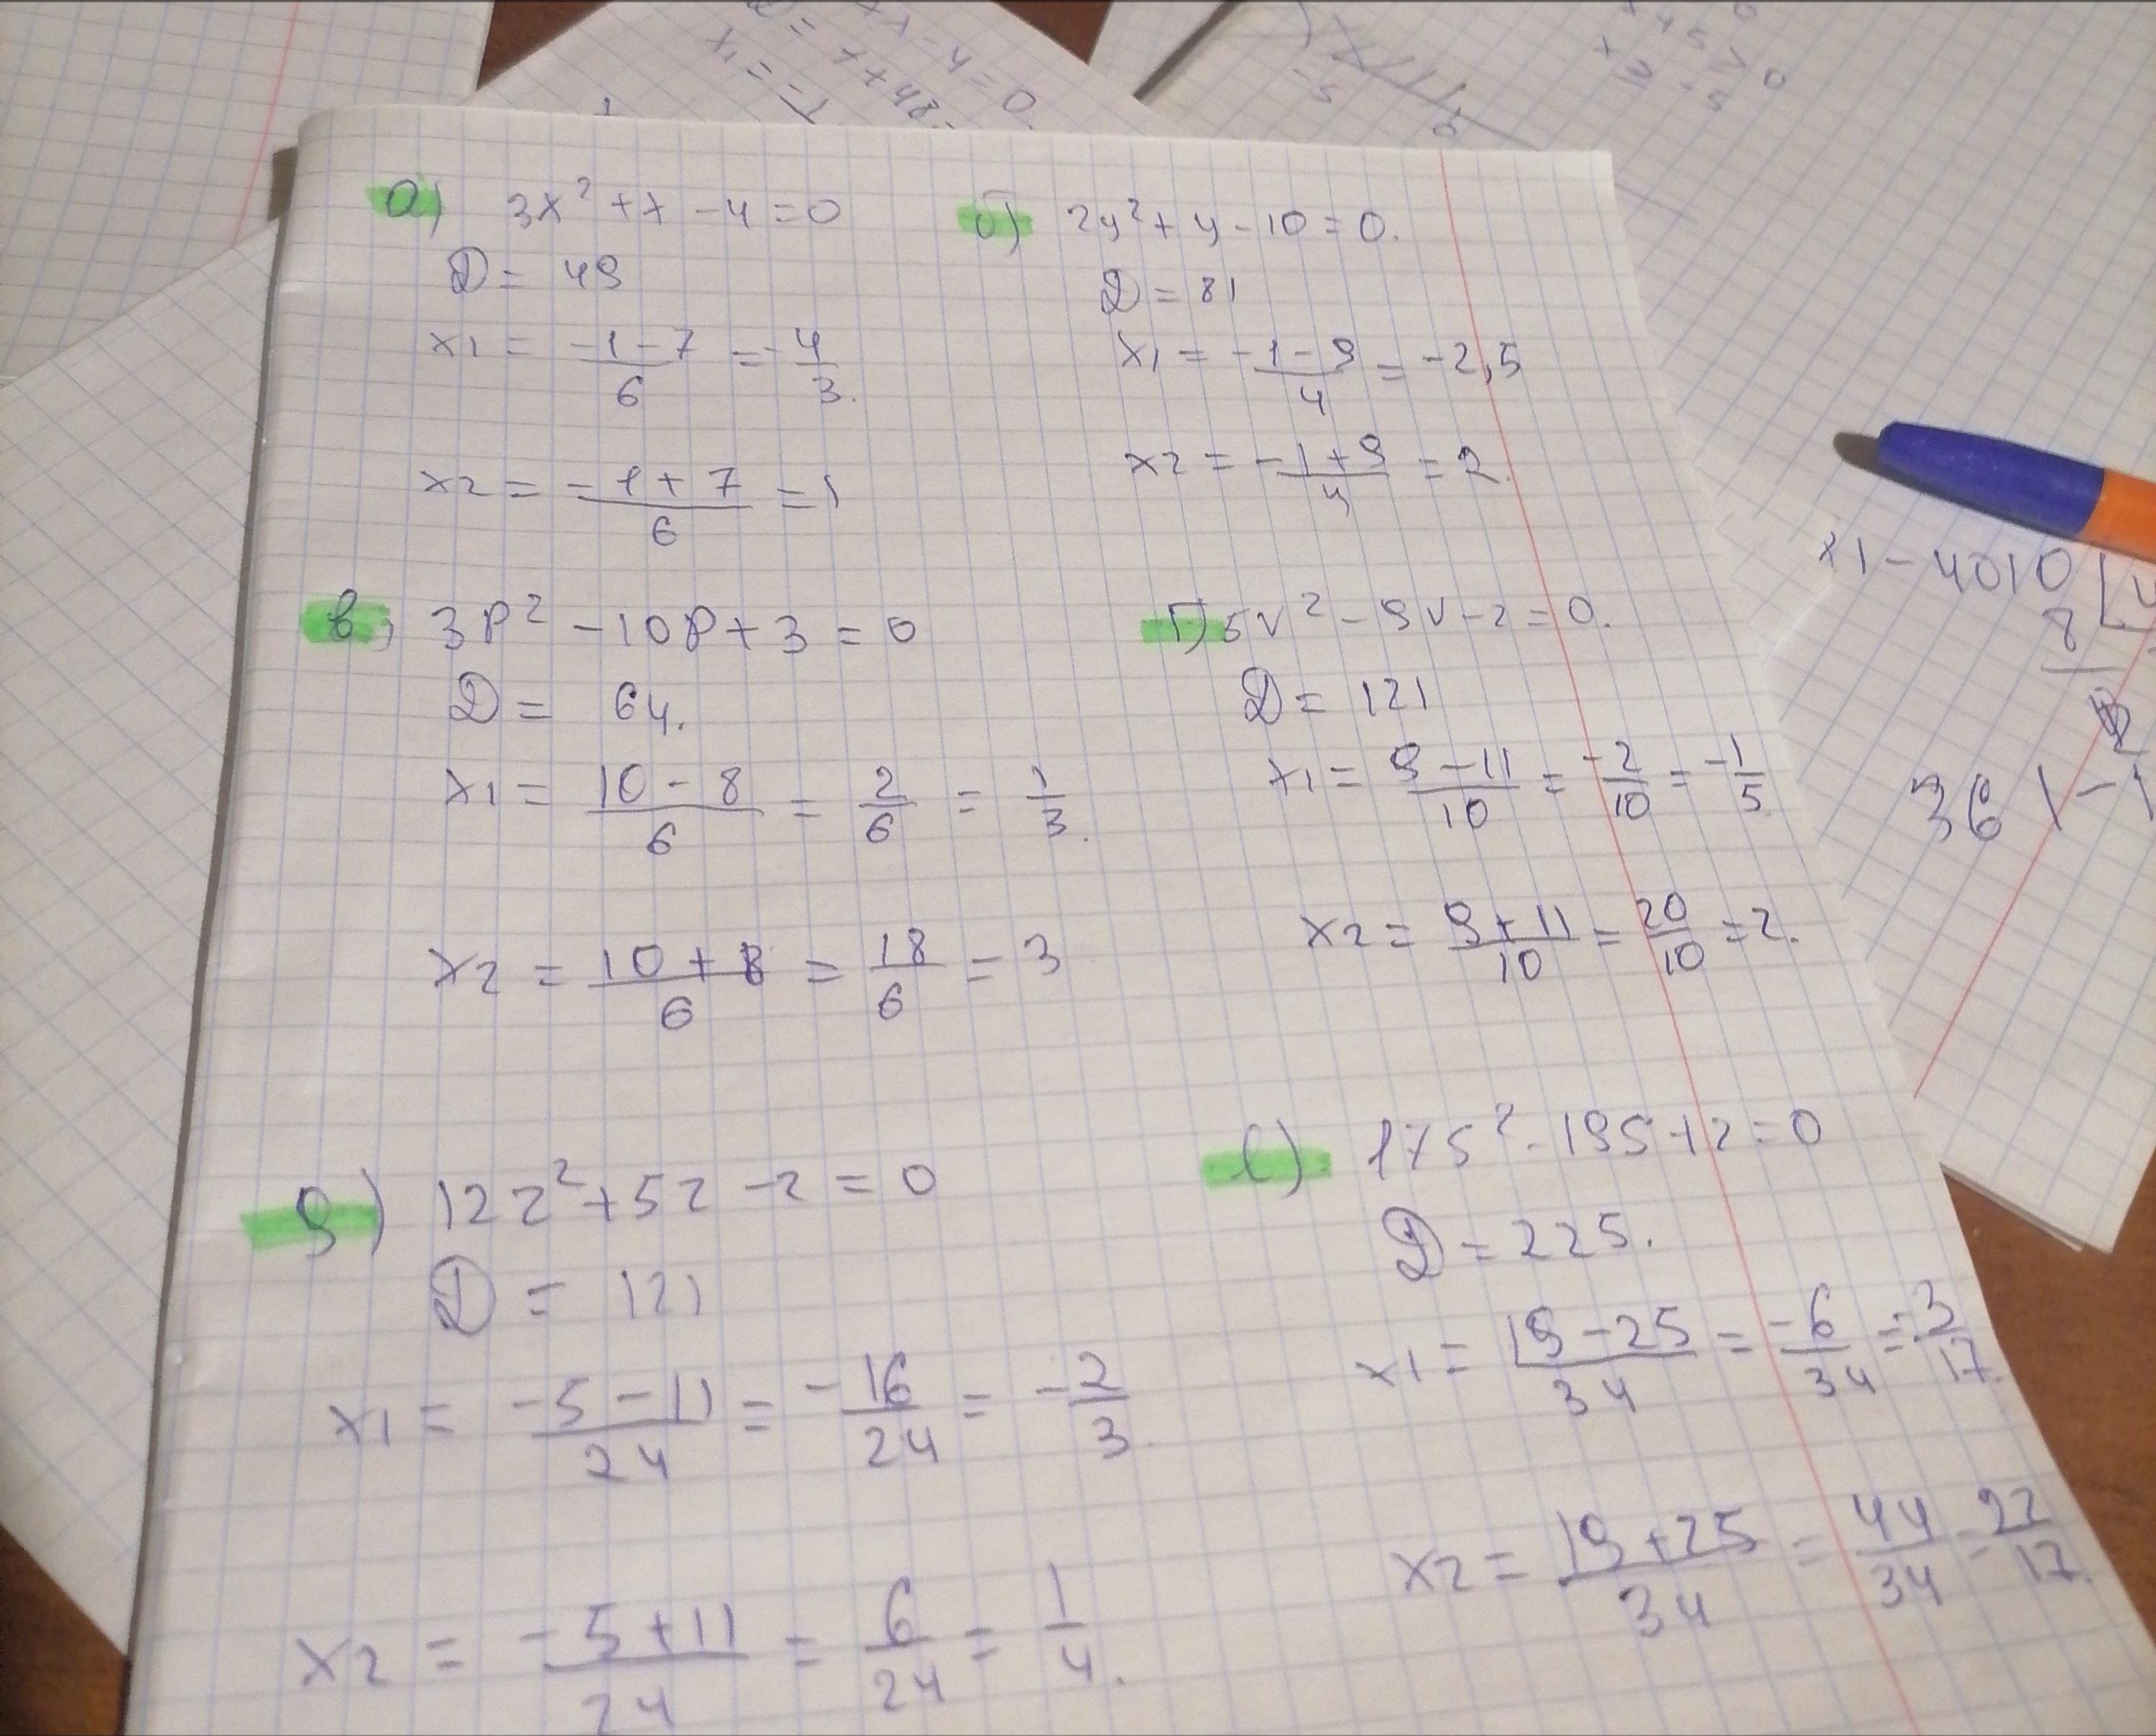 а) 3x² + x - 4 = 0
D = 49
x1 = (-1-7)/6 = -4/3.
x2 = (-1+7)/6 = 1
б) 2y² + y - 10 = 0.
D = 81
x1 = (-1-9)/4 = -2,5
x2 = (-1+9)/4 = 2.
в) 3p² - 10p + 3 = 0
D = 64.
x1 = (10-8)/6 = 2/6 = 1/3.
x2 = (10+8)/6 = 18/6 = 3
г) 5v² - 9v - 2 = 0.
D = 121
x1 = (9-11)/10 = -2/10 = -1/5
x2 = (9+11)/10 = 20/10 = 2.
д) 12z² + 5z - 2 = 0
D = 121
x1 = (-5-11)/24 = -16/24 = -2/3.
x2 = (-5+11)/24 = 6/24 = 1/4.
е) 17s² - 19s + 2 = 0
D = 225.
x1 = (19-25)/34 = -6/34 = -3/17.
x2 = (19+25)/34 = 44/34 = 22/17.
4010
8
361